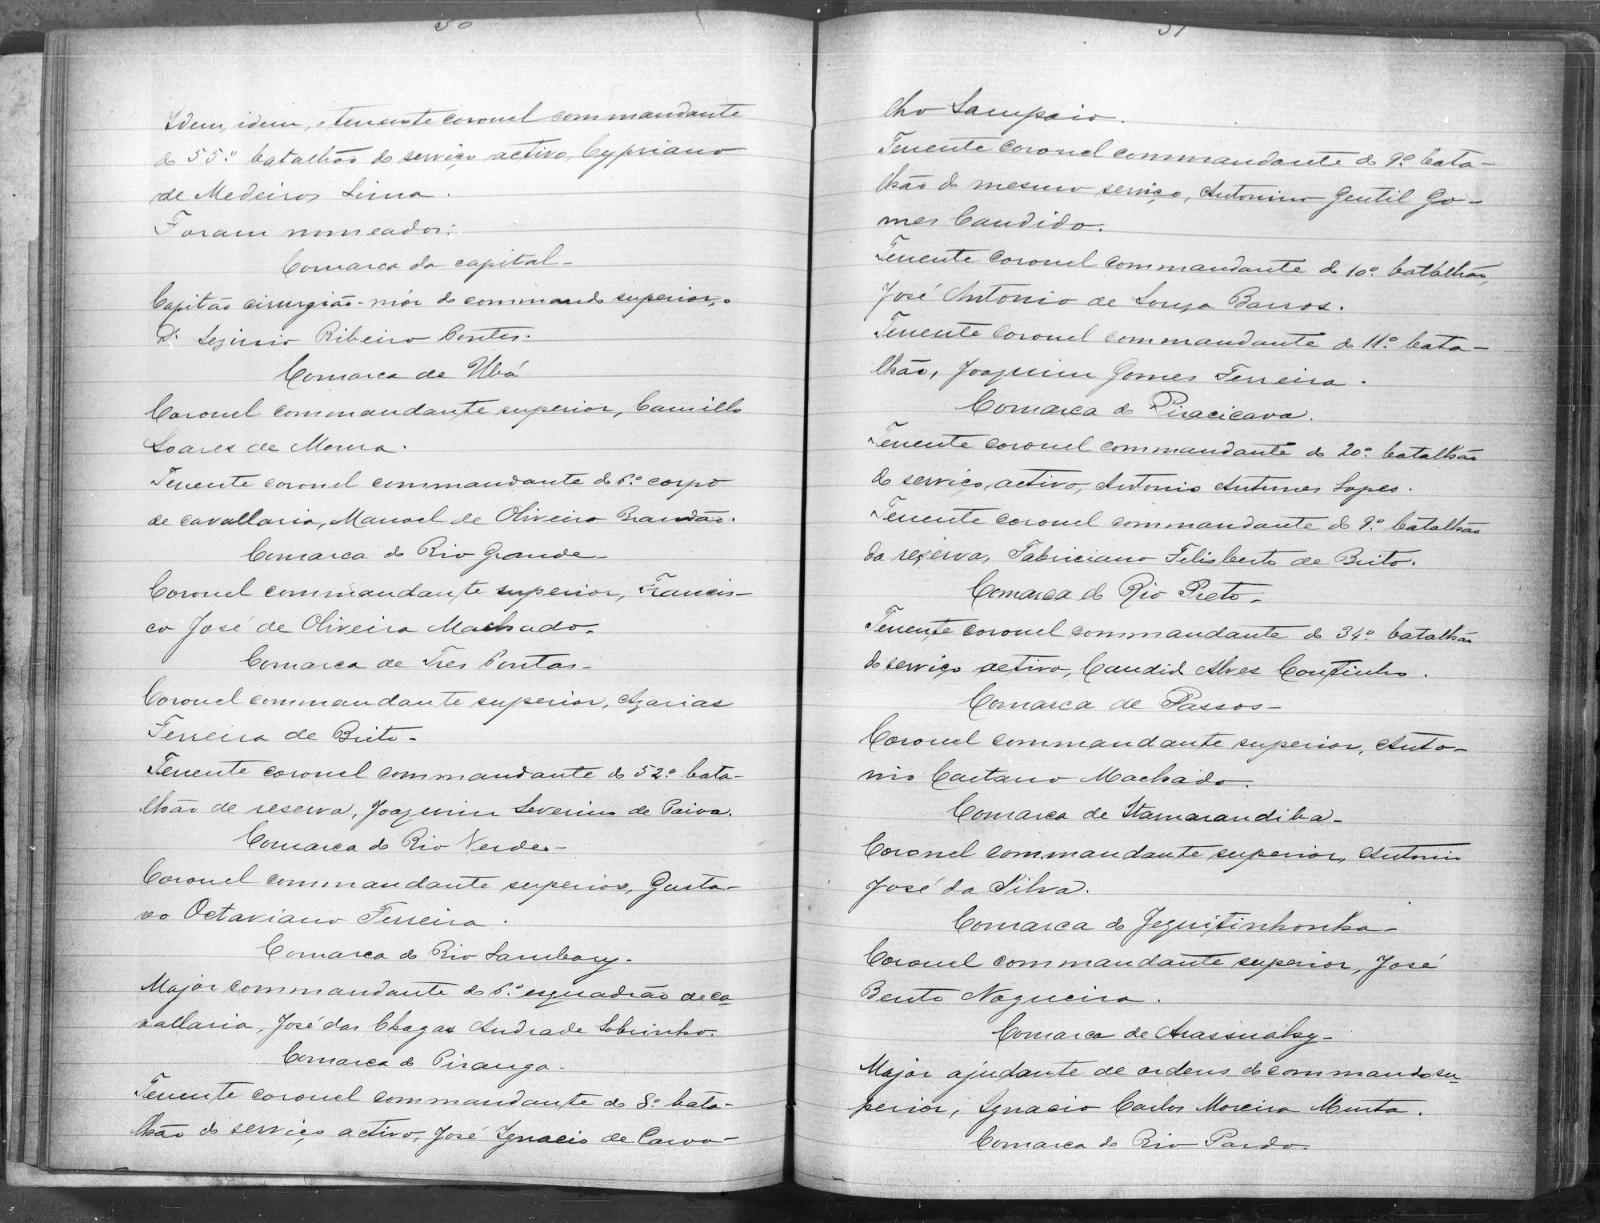 50
Idem, idem, o tenente coronel commandante
do 55º batalhão do serviço activo, Cypriano
de Medeiros Lima.
Foram nomeados:
Comarca da capital-
Capitão cirurgião-mór do commando superior, o
Dr Ribeiro Pontes.
Comarca de Ubá
Coronel commandante superior, Camillo
Soares de Moura.
Tenente coronel commandante do 6º corpo
de cavallaria, Manoel de Oliveira Brandão.
Comarca do Rio Grande-
Coronel commandante superior, Francis-
co José de Oliveira Machado.
Comarca de Tres Pontas-
Coronel commandante superior, Azarias
Ferreira de Brito-
Tenente coronel commandante do 52º bata-
lhão de reserva, Joaquim Severino de Paiva.
Comarca do Rio Verde-
Coronel commandante superior, Gusta-
vo Octaviano Ferreira.
Comarca do Rio Sambary-
Major commandante do 6º esquadrão de ca
vallaria, José das Chagas Andrade Sobrinho.
Comarca do Piranga-
Tenente coronel commandante do 8º bata-
lhão do serviço activo, José Ignacio de Carva-
51
lho Sampaio.
Tenente coronel commandante do 9º bata-
lhão do mesmo serviço, Antonino Gentil Go-
mes Candido.
Tenente coronel commandante do 10º batalhão,
José Antonio de Souza Barros.
Tenente coronel commandante do 11º bata-
lhão, Joaquim Gomes Ferreira.
Comarca do Piracicava.
Tenente coronel commandante do 20º batalhão
do serviço activo, Antonio Antunes Lopes.
Tenente coronel commandante do 9º batalhão
da reserva, Fabriciano Felisberto de Brito.
Comarca do Rio Preto-
Tenente coronel commandante do 34º batalhão
do serviço activo, Candido Alves Coutinho.
Comarca de Passos-
Coronel commandante superior, Anto-
nio Caetano Machado.
Comarca de Itamarandiba-
Coronel commandante superior, Antonio
José da Silva.
Comarca do Jequitinhonha-
Coronel commandante superior, José
Bento Nogueira.
Comarca de Arassuahy-
Major ajudante de ordens do commando su
perior, Ignacio Carlos Moreira Murta.
Comarca do Rio Pardo.